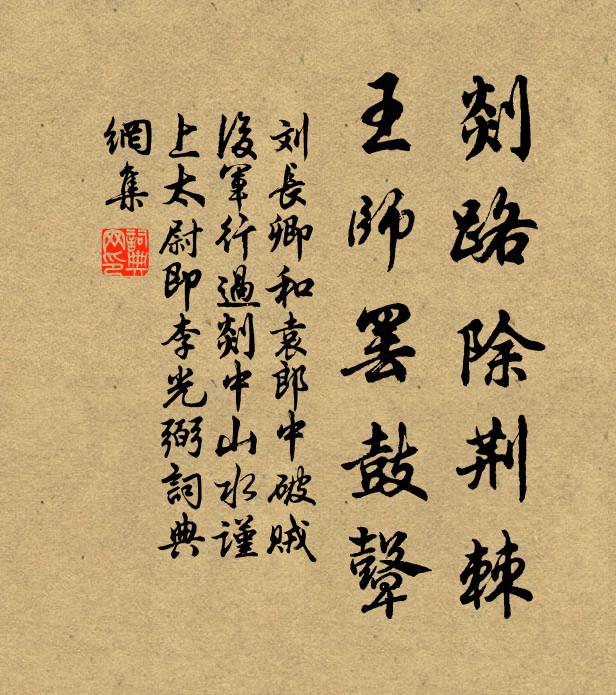 剡路除荆棘
王师罢鼓鼙
刘長卿和袁郎中破贼
後軍行過剡中山水謹
上太尉即李光弼詞典
網集
詞典网印